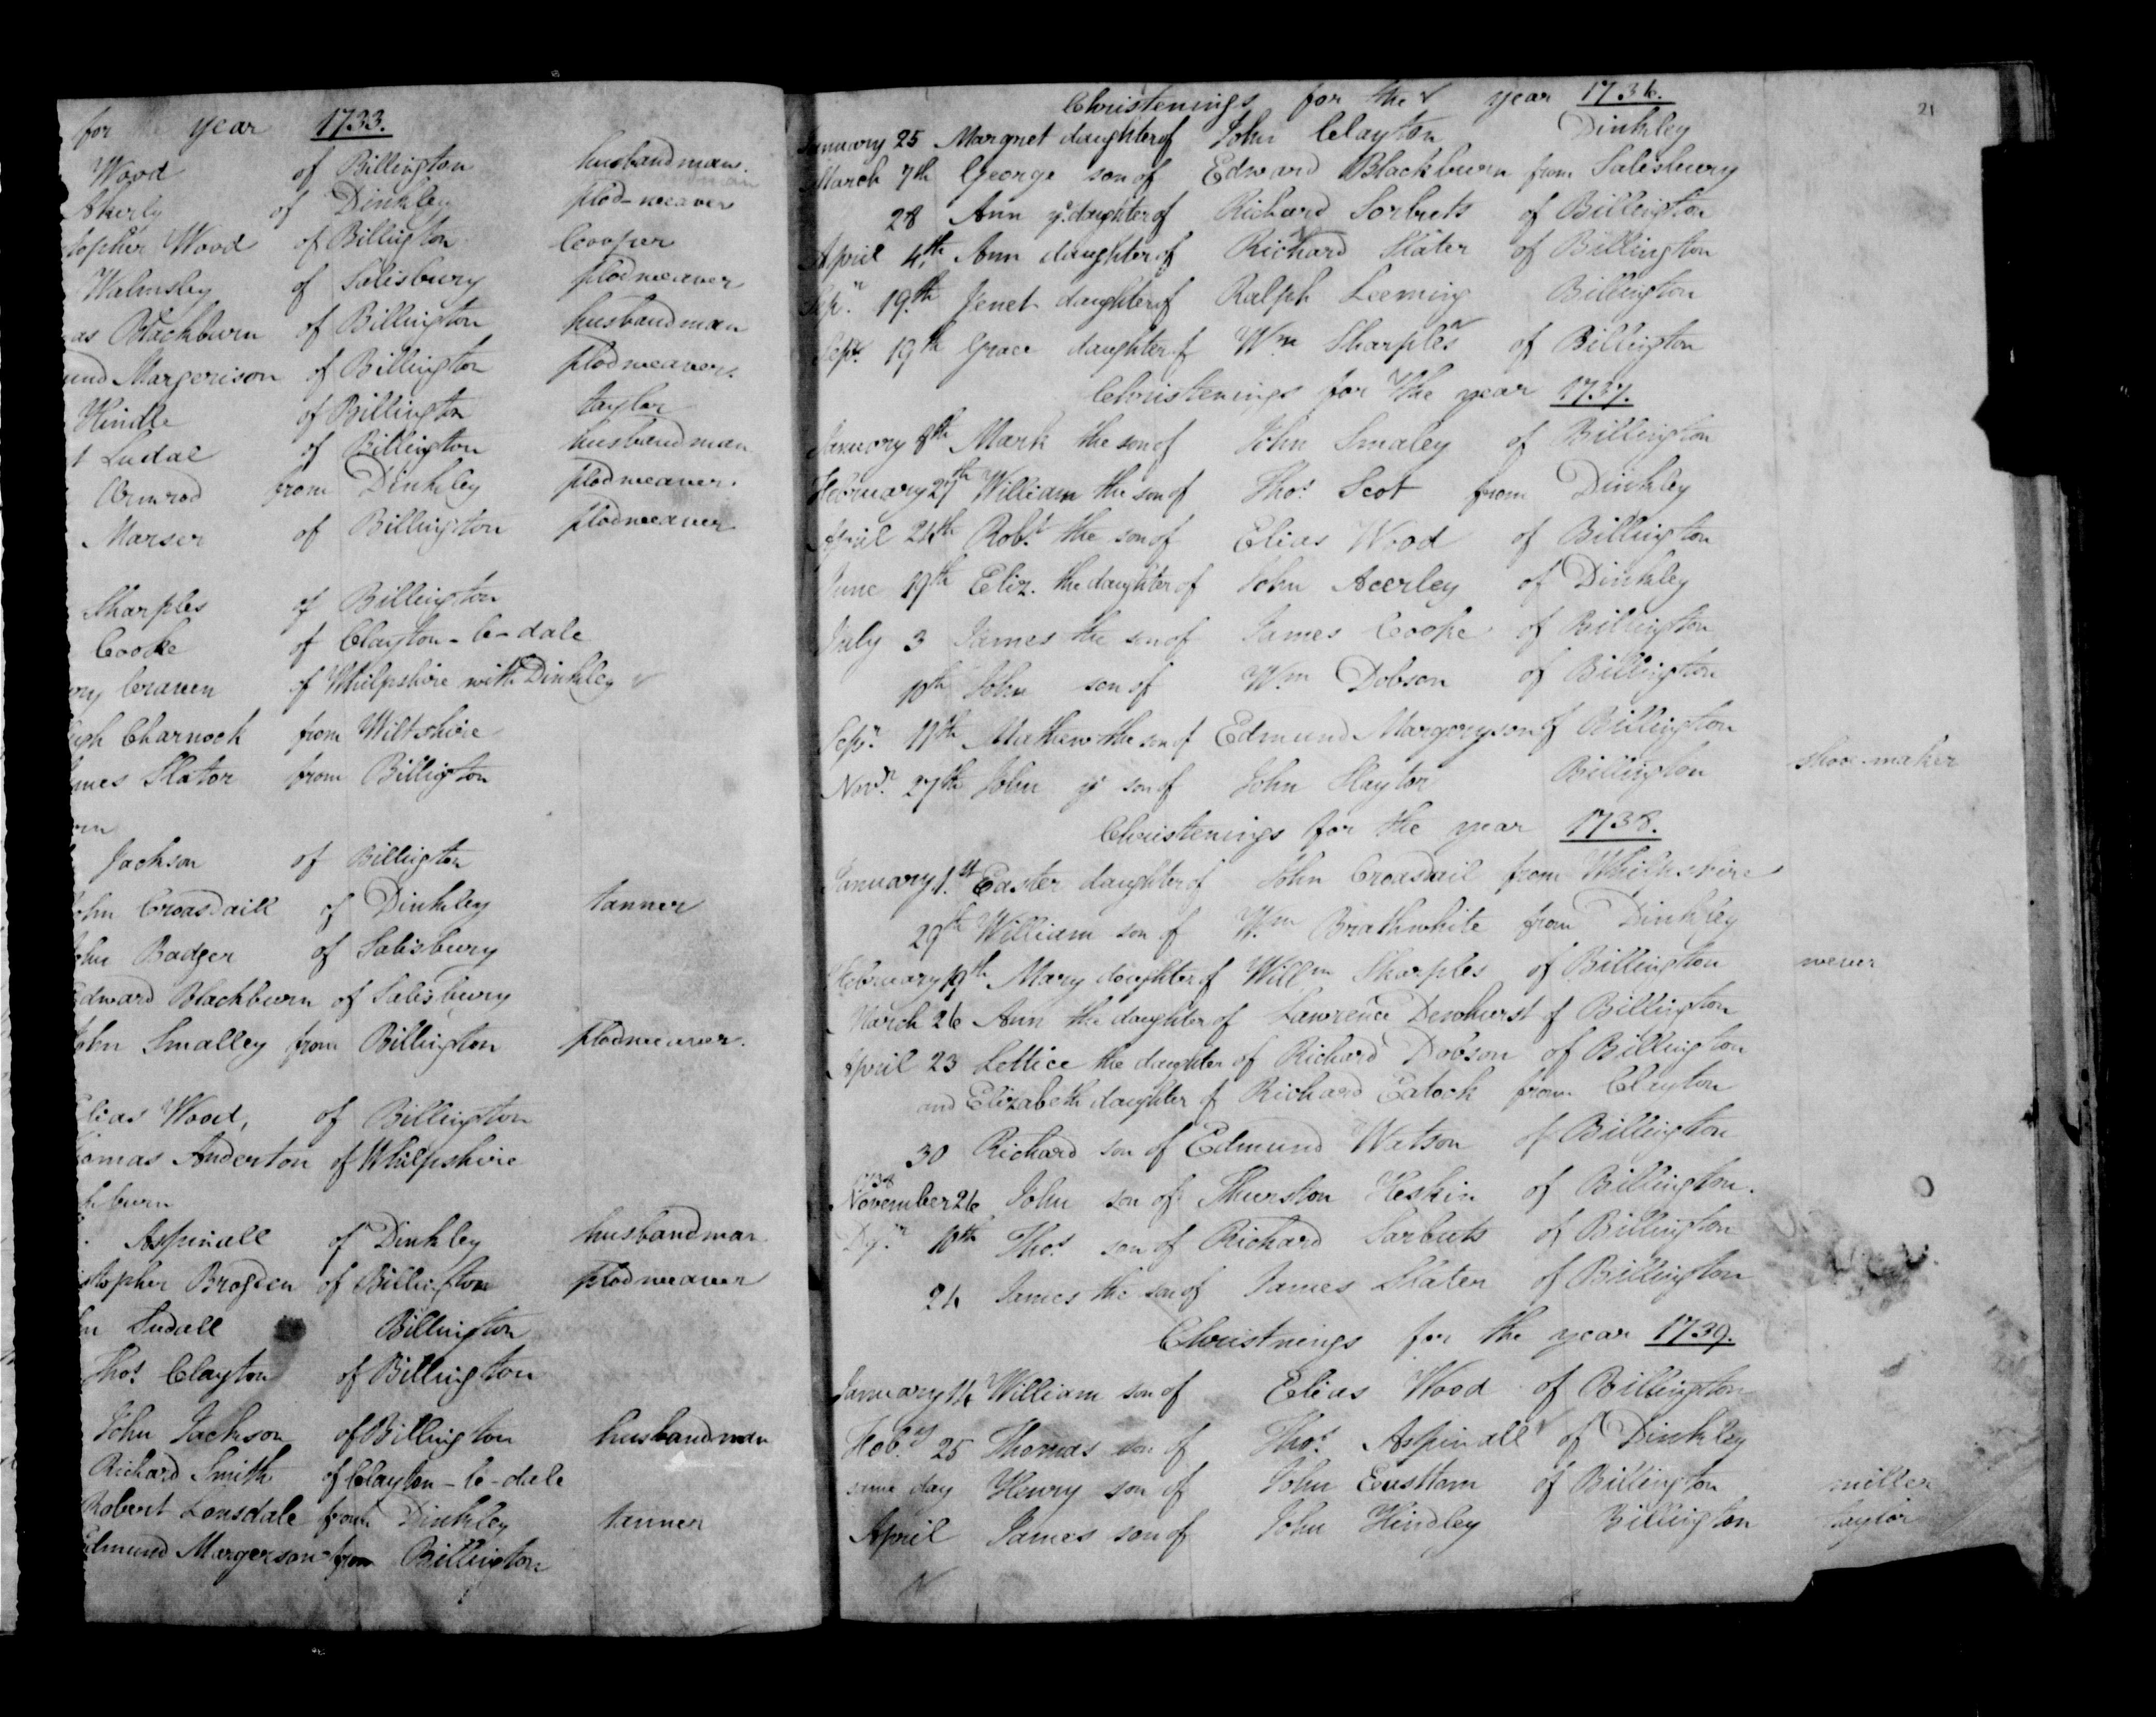 for the year 1733.
Wood of Billington husbandman.
Akerly of Dinkley plod-weaver
topher Wood of Billington Cooper
Walmsley of Salisbury plodweaver
as Blackburn of Billington husbandman
und Margerison of Billington plodweaver.
Hindle of Billington taylor
Ludal of Billington husbandman
Ormrod from Dinkley plodweaver.
Marser of Billington plodweaver
Sharples of Billington
Cooke of Clayton-le-dale
ory Craven of Whilpshire with Dinkley
gh Charnock from Wiltshire
ames Slator from Billington
Jackson of Billington
ohn Croasdaill of Dinkley tanner
ohn Badger of Salisbury
Edward Blackburn of Salisbury
John Smalley from Billington plodweaver.
Elias Wood, of Billington
homas Anderton of Whilpshire
burn
Aspinall of Dinkley husbandman
stopher Brogden of Billington plodweaver
Sudall Billington
Thos. Clayton of Billington
John Jackson of Billington husbandman
Richard Smith of Clayton-le-dale
Robert Lonsdale from Dinkley tanner
Edmund Margerson from Billington
21
Christenings for the year 1736.
January 25 Margret daughter of John Clayton Dinkley
March 7th George son of Edward Blackburn from Salesbury
28 Ann ye daughter of Richard Sorbuts of Billington
April 4th Ann daughter of Richard Slater of Billington
Sepr. 19th Jenet daughter of Ralph Leeming Billington
Sepr. 19th Grace daughter of Wm Sharples of Billington
Christenings for the year 1737.
January 8th Mark the son of John Smaley of Billington
February 27th William the son of Thos. Scot from Dinkley
April 24th Robt. the son of Elias Wood of Billington
June 19th Eliz. the daughter of John Acerley of Dinkley
July 3 James the son of James Cooke of Billington
10th John son of Wm Dobson of Billington
Sepr. 11th Mathew the son of Edmund Margeryson of Billington
Novr. 27th John ye son of John Slayter Billington shooe-maker
Christenings for the year 1738.
January 1.st Easter daughter of John Croasdail from Whilpshire
29th William son of Wm Brathwhite from Dinkley
February 19th Mary daughter of Willm Sharples of Billington wever
March 26 Ann the daughter of Lawrence Dewhurst of Billington
April 23 Lettice the daughter of Richard Dobson of Billington
and Elizabeth daughter of Richard Eatock from Clayton
30 Richard son of Edmund Watson of Billington
1738
November 26 John son of Thurston Heskin of Billington.
10th Thos. son of Richard Sarbuts of Billington
24 James the son of James Slater of Billington
Christnings for the year 1739.
January 14 William son of Elias Wood of Billington
Feb.ry 25 Thomas son of Thos. Aspinall of Dinkley
same day Henry son of John Eastham of Billington miller
April James son of John Hindley Billington taylor